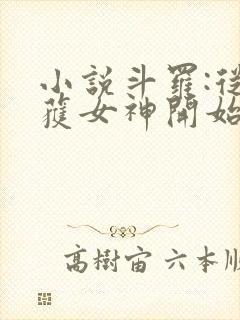 小説斗羅:從
獲女神開始
高樹宙 六本